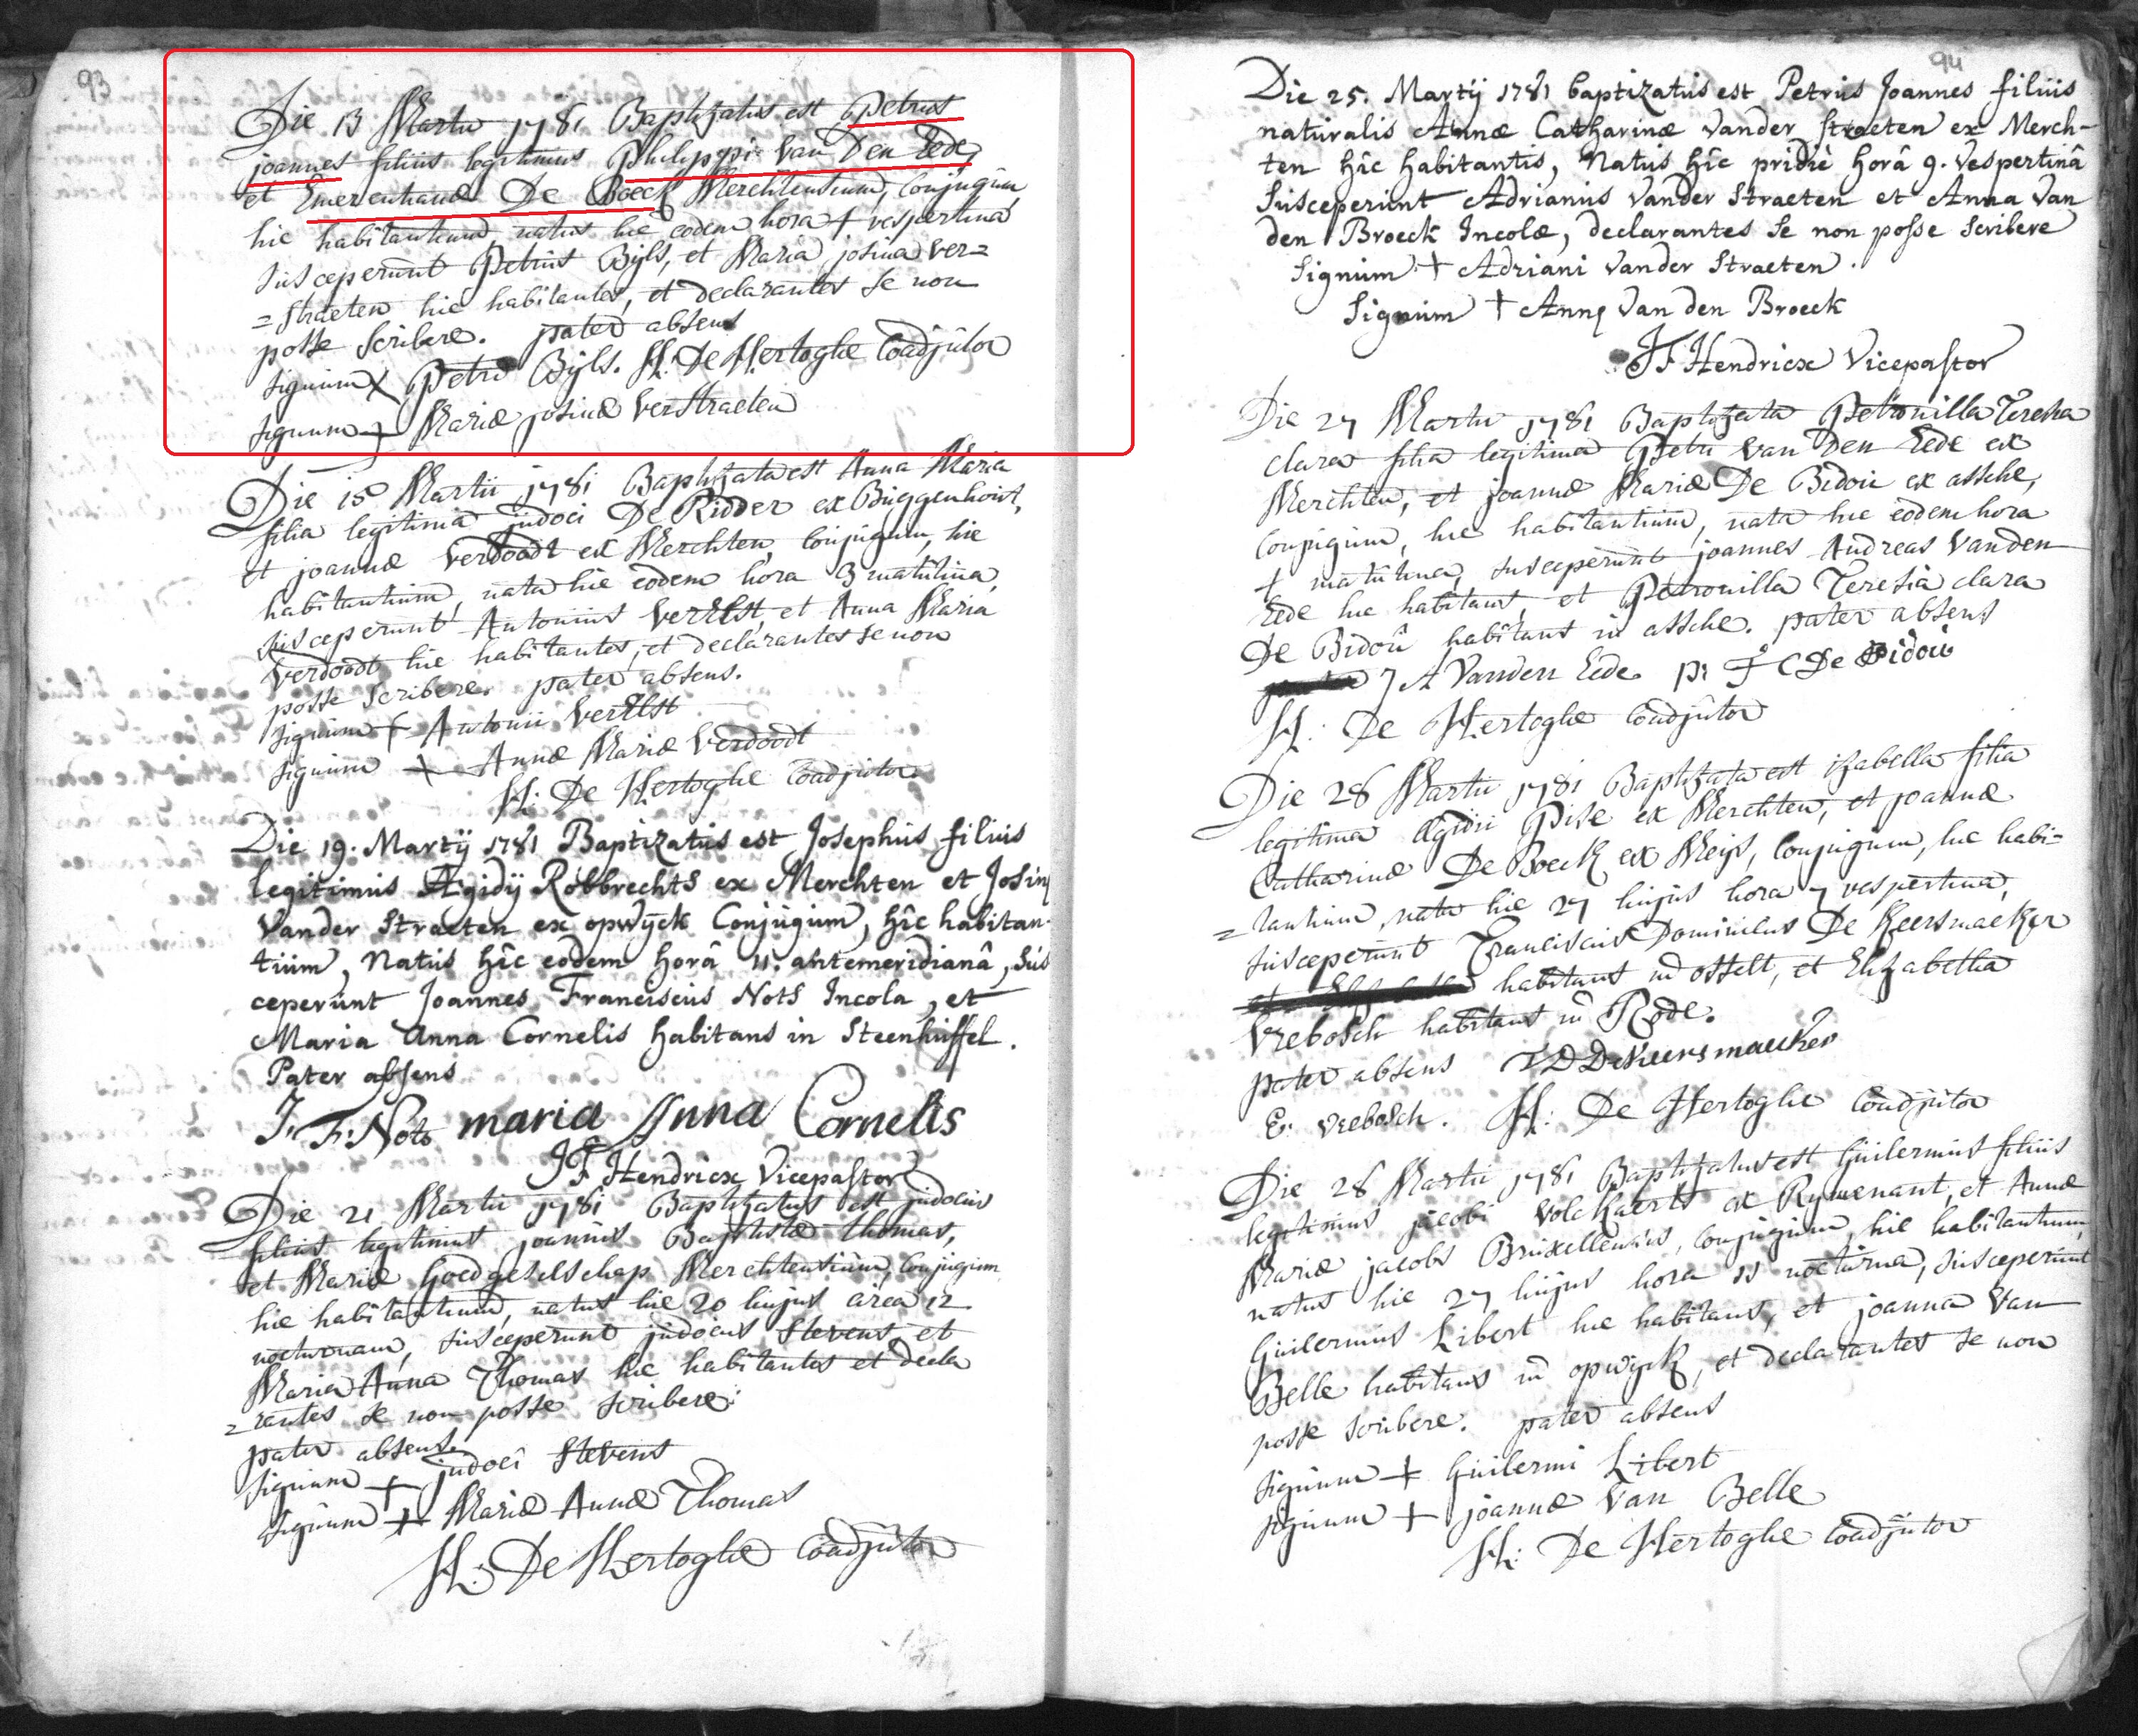 93
Die 13 Martii 1781 Baptizatus est Petrus
joannes filius legitimus Philippi Van Den Eede,
et Emerentianæ De Boeck Merchtensium, Conjugum,
hic habitantium, natus hic eodem hora + vespertina
susceperunt Petrus Bijls, et Maria josina Ver=
=straeten hic habitantes, et declarantes se non
posse scribere. pater absens
signum X Petri Bijls. H: De Hertoghe Coadjutor
signum + Mariæ josinæ Verstraeten
Die 15 Martii 1781 Baptizata est Anna Maria
filia legitima judoci De Ridder ex Buggenhout,
et joannæ Verdoodt ex Merchten, Conjugum, hic
habitantium, nata hic eodem hora 3 matutina,
susceperunt Antonius VerElst, et Anna Maria
Verdoodt hic habitantes, et declarantes se non
posse scribere. pater absens.
signum + Antonii VerElst
signum + Annæ Mariæ Verdoodt
H: De Hertoghe Coadjutor
Die 19. Martij 1781 Baptizatus est Josephus filius
legitimus Ægidij Robbrechts ex Merchten et Josinæ
Vander Straeten ex opwijck Conjugum, hîc habitan-
tium, Natus hîc eodem horâ 11. antemeridianâ, Sus
ceperunt Joannes Franciscus Nots Incola, et
Maria Anna Cornelis habitans in Steenhuffel.
Pater absens
J: F: Nots maria Anna Cornelis
JF Hendricx Vicepastor
Die 21 Martii 1781 Baptizatus est judocus
filius legitimus joannis Baptistæ Thomas,
et Mariæ Goedgeselschap Merchtensium, Conjugum
hic habitantium, natus hic 20 hujus circa 12
nocturnam, susceperunt judocus Stevens, et
Maria Anna Thomas hic habitantes et decla
=rantes se non posse scribere:
pater absens.
signum + judoci Stevens
signum + Mariæ Annæ Thomas
H: De Hertoghe Coadjutor
94
Die 25. Martij 1781 baptizatus est Petrus Joannes filius
naturalis Annæ Catharinæ Vander Straeten ex Merch-
ten hîc habitantis, Natus hîc pridiè horâ 9. Vespertinâ
Susceperunt Adrianus Vander Straeten et Anna Van
den Broeck Incolæ, declarantes Se non posse Scribere
Signum + Adriani Vander Straeten.
Signum + Annæ Van den Broeck
JF Hendricx Vicepastor
Die 27 Martii 1781 Baptizata Petronilla Teresia
clara filia legitima Petri Van Den Eede ex
Merchten, et joannæ Mariæ De Bidou ex assche,
Conjugum, hic habitantium, nata hic eodem hora
+ matutina, susceperunt joannes Andreas Vanden
Eede hic habitans, et Petronilla Teresia clara
De Bidou habitans in assche. pater absens
J A Vanden Eede. P: T C De Bidou
H: De Hertoghe Coadjutor
Die 28 Martii 1781 Baptizata est isabella filia
legitima Ægidii Pise ex Merchten, et joannæ
Catharinæ De Boeck ex Meijs, Conjugum, hic habi=
=tantium, nata hic 27 hujus hora 7 vespertina,
susceperunt Franciscus Dominicus De Keersmaeker
habitans in Osselt, et Elizabetha
Vrebosch habitans in Rode.
pater absens FD DeKeersmaeker
E: vrebosch. H: De Hertoghe Coadjutor
Die 28 Martii 1781 Baptizatus est Guilermus filius
legitimus jacobi Volckaerts ex Rymenant, et Annæ
Mariæ jacobs Bruxellensis, Conjugum hic habitantium,
natus hic 27 hujus hora 11 nocturna, susceperunt
Guilermus Libert hic habitans, et joanna Van
Belle habitans in opwijck, et declarantes se non
posse scribere. pater absens
signum + Guilermi Libert
signum + joannæ Van Belle
H: De Hertoghe Coadjutor